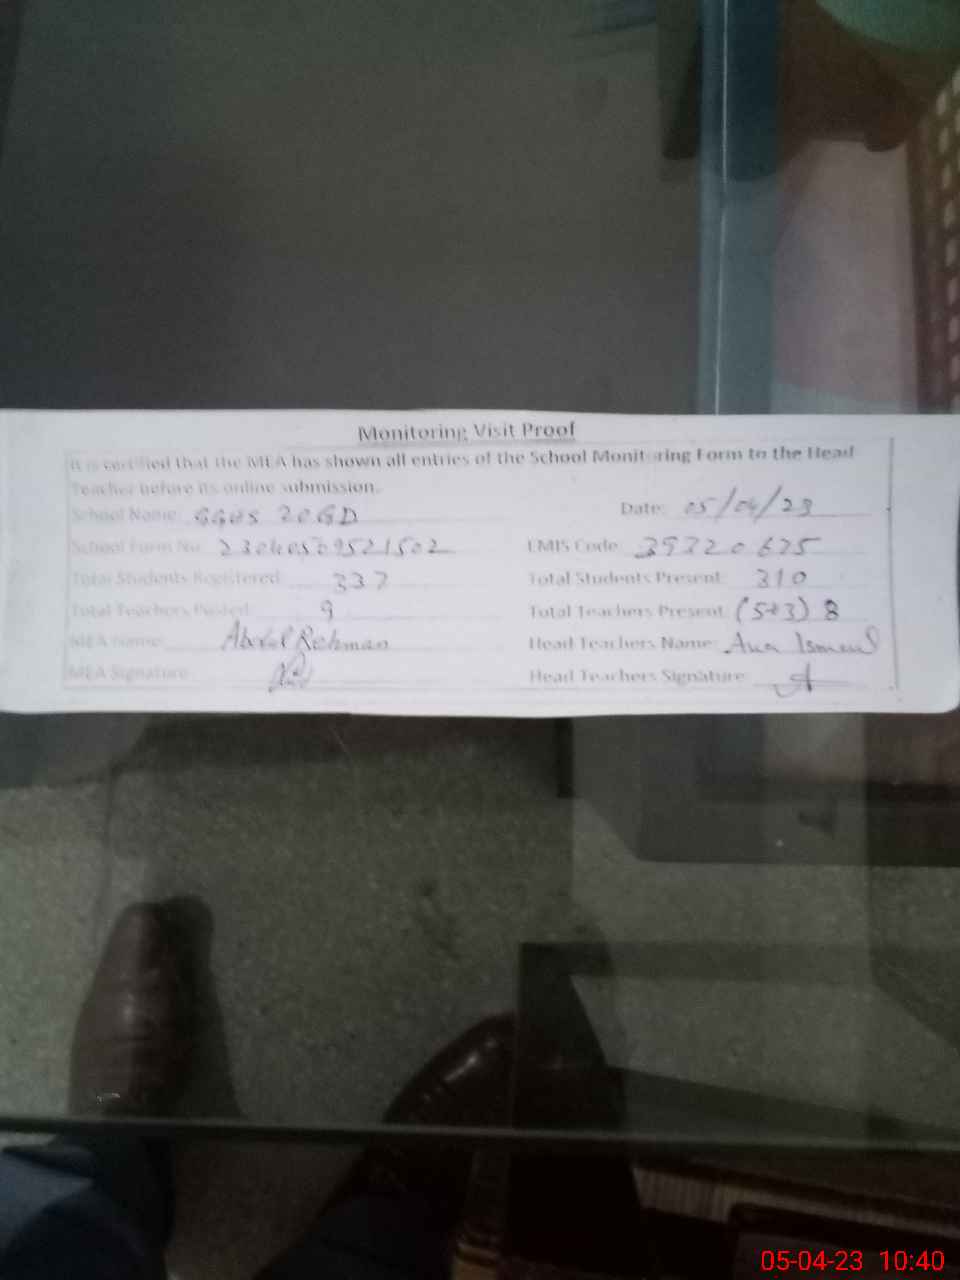 Monitoring Visit Proof
It is certified that the MEA has shown all entries of the School Monitoring Form to the Head
Teacher before its online submission.
School Name: GGHS 20GD Date: 05/04/23
School Form No: EMIS Code: 39320675
Total Students Registered: 337 Total Students Present: 310
Total Teachers Posted: 9 Total Teachers Present: (5+3) 8
MEA Name: Abdul Rehman Head Teachers Name:
MEA Signature Head Teachers Signature
05-04-23 10:40